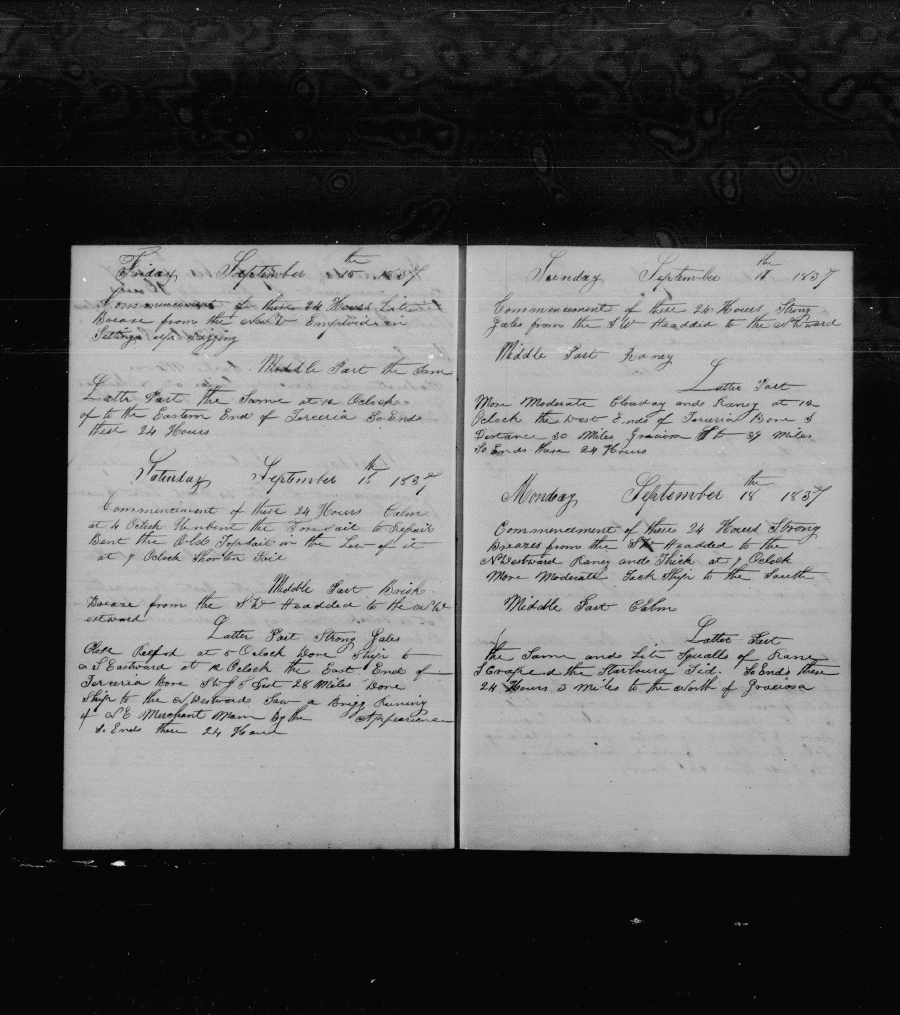 Friday September 15th 1837
Commencement of these 24 Hours Lite
Breaze from the Employd in
Setting up Rigging
Middle Part the Sam
Latte Part the Same at 12 Oclock
of to the Eastern End of Terceria So Ends
these 24 Hours
Saturday September 15th 1837
Commencement of these 24 Hours Calm
at 4 Oclock Unbent the Foresail to Repair
Bent the Old Topsail in the Lew of it
at 7 Oclock Shorten Sail
Middle Part Brisk
Breaze from the SW Headded to the NW
estward
Latter Part Strong Gales
Close Reefd at 5 Oclock Wore Ship to
S Eastward at 12 Oclock the East End of
Terceria Bore Dist 28 Miles Wore
Ship to the N Westward Saw a Brigg Runing
SE Merchant Mann by the Appearance
So Ends these 24 Hour
Sunday September th 1837
Commencement of these 24 Hours Strong
Gales from the SW Headded to the Nward
Middle Part Raney
Latter Part
More Moderate Clouday and Raney at 12
Oclock the West End of Terceria Bore S
Distance 30 Miles 39 Miles
So Ends these 24 Hours
Monday September 18th 1837
Commencement of theis 24 Hours Strong
Breazes from the SW Headded to the
N Westward Raney and Thick at 7 Oclock
More Moderate Tack Ship to the South
Middle Part Calm
Latter Part
the Same and Lite Squalls of Rane
Scraped the Starbourd Sid So Ends these
24 Hours 3 Miles to the North of Graciosa